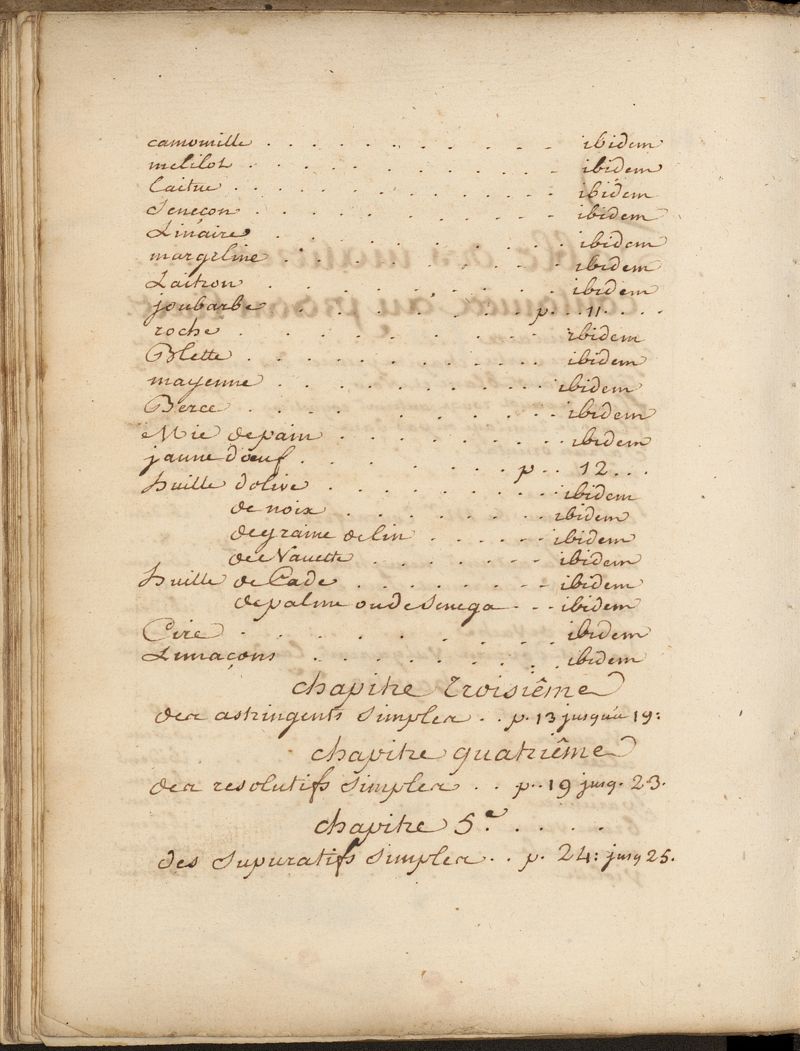 camomille . . . . . . . . . . . . ibidem
melilot . . . . . . . . . . . . ibidem
laitue . . . . . . . . . . . . ibidem
Seneçon . . . . . . . . . . . . ibidem
Linaire . . . . . . . . . . . ibidem
margeline . . . . . . . . . . . ibidem
Laitron . . . . . . . . . . . ibidem
joubarbe . . . . . . . . . p. . 11 . . . .
roche . . . . . . . . . . . ibidem
Blette . . . . . . . . . . . ibidem
mayenne . . . . . . . . . . ibidem
Berce . . . . . . . . . . . ibidem
Mie de pain . . . . . . . . ibidem
jaune d'oeuf . . . . . . . . p . . 12 . . .
huille d'olive . . . . . . . . . ibidem
de noix . . . . . . . . ibidem
de graine de lin . . . . . . ibidem
de Nauette . . . . . . . ibidem
huille de Cade . . . . . . . . ibidem
de palme ou de Senega . . . ibidem
Cire . . . . . . . . . . ibidem
Limaçons . . . . . . . . ibidem
chapitre troisiême
des astringents simples . . p. 13 jusqu'a 19:
chapitre quatriême
des resolutifs simples . . p. . 19 jusq. 23.
chapitre 5.e . . . .
des supuratifs simples . . p. 24: jusq 25.